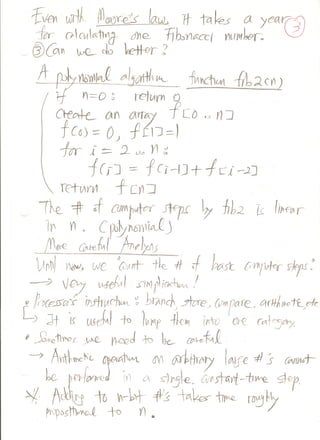 Even with Moore's law, it takes a year
for calculating one Fibonacci number.
3
③ Can we do better?
A polynomial algorithm function fib2(n)
if n=0: return 0
Create an array f[0..n]
f(0) = 0, f[1]=1
for i = 2..n:
f[i] = f[i-1] + f[i-2]
return f[n]
The # of computer steps by fib2 is linear
in n. (polynomial)
More Careful Analysis
Until now, we "count the # of basic computer steps."
→ Very useful simplication!
• Processor's instruction: branch, store, compare, arithmetic, etc
↳ It is useful to lump them into one category.
• Sometimes we need to be careful
→ Arithmetic operation on arbitrary large #'s cannot
be performed in a single, constant-time step.
Adding to n-bit #'s takes time roughly
to n.